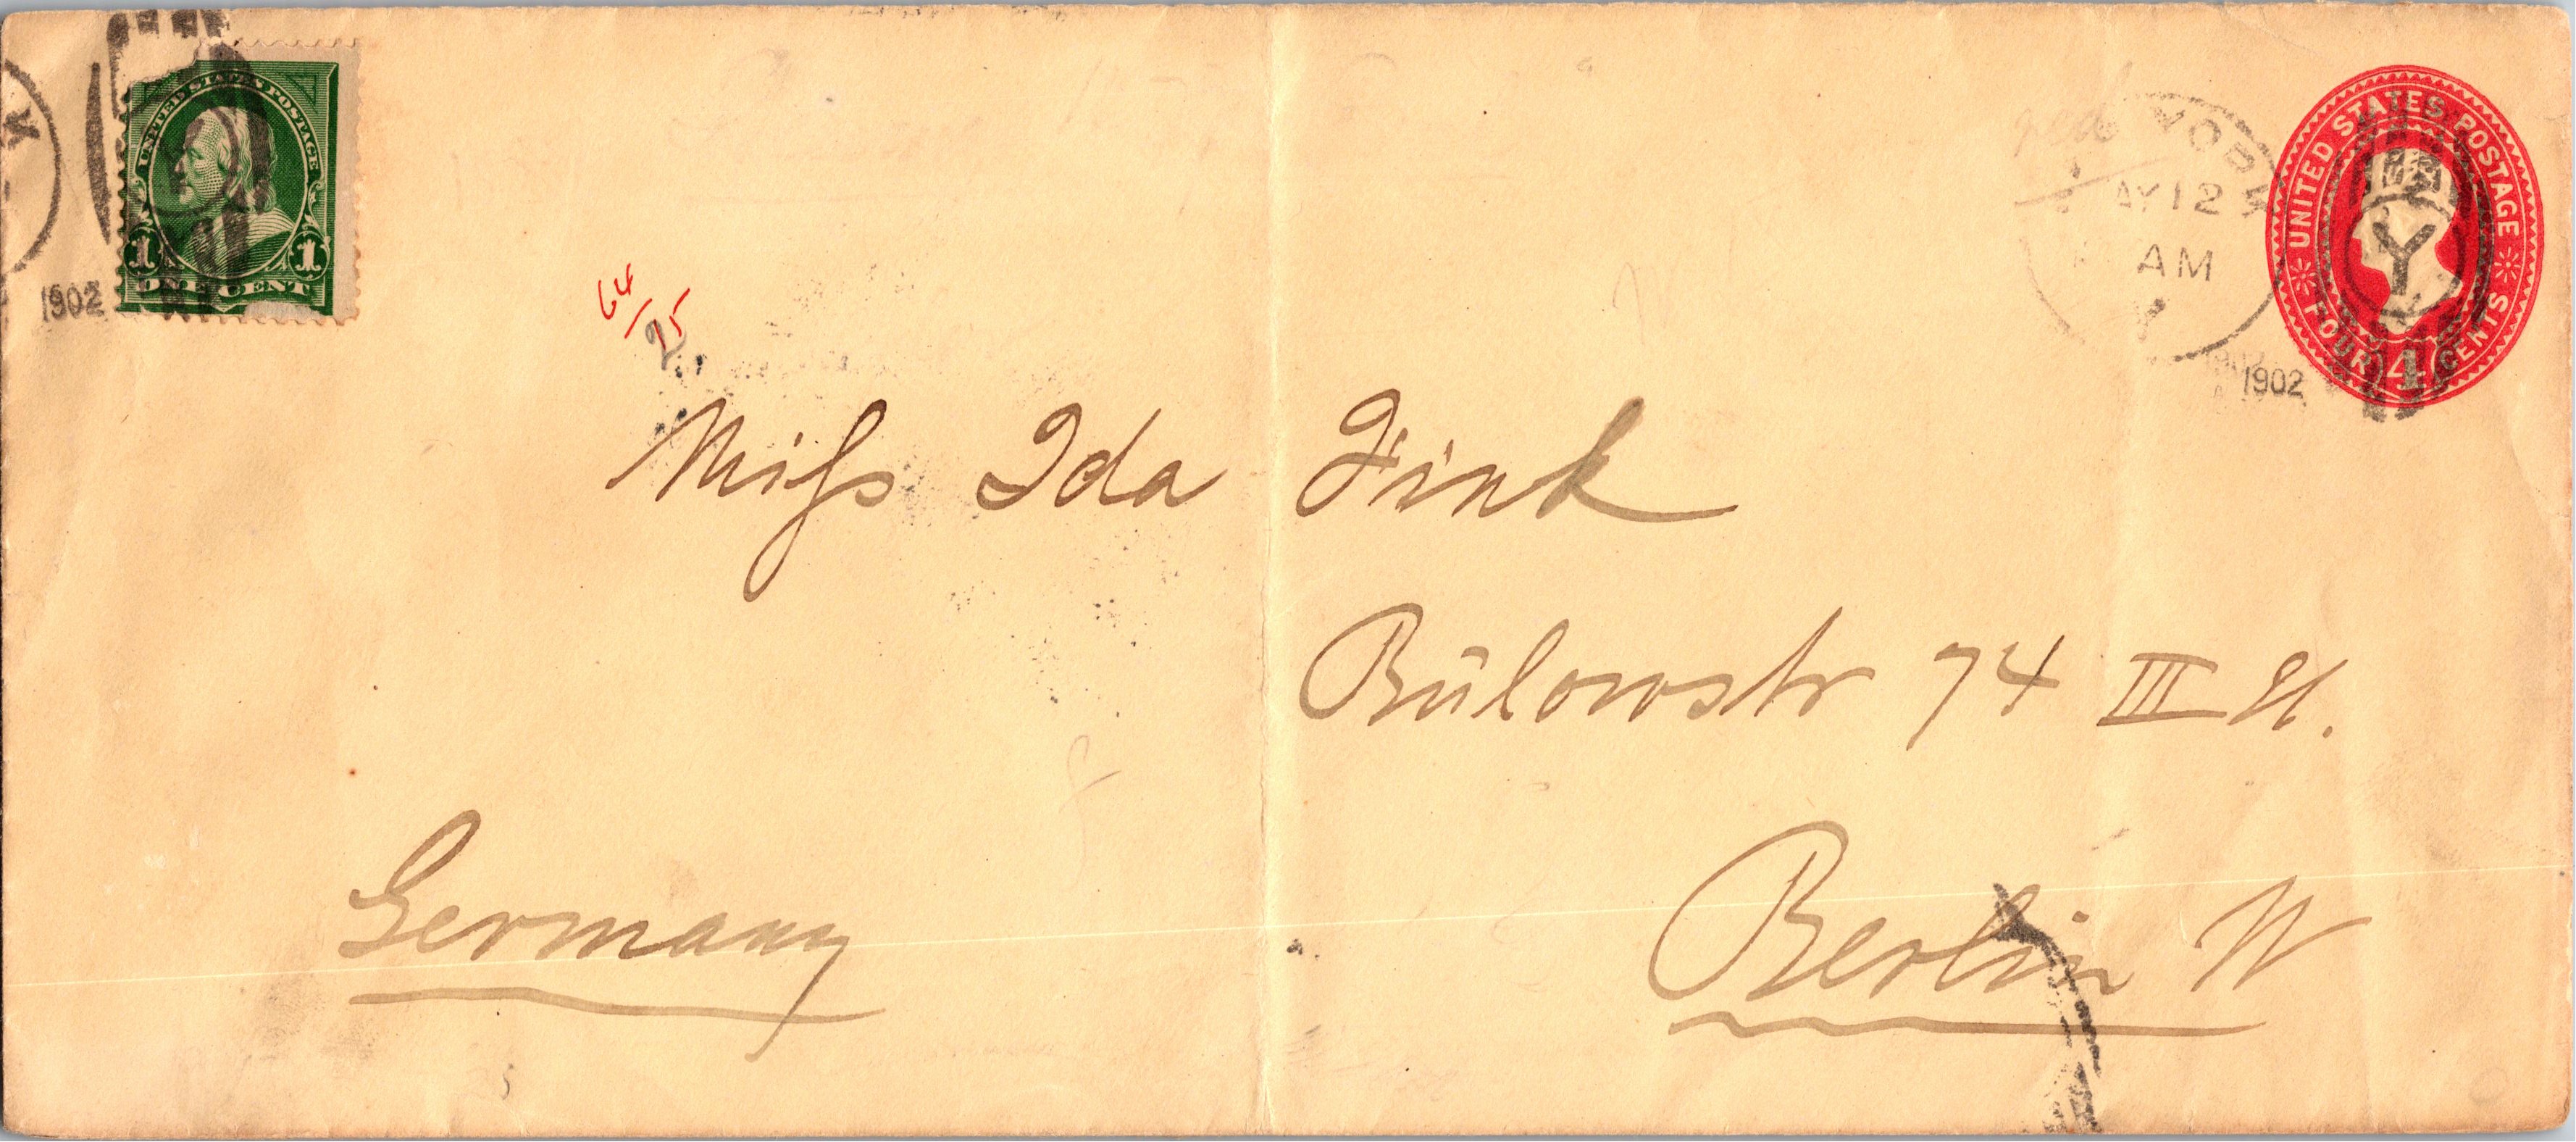 UNITED STATES POSTAGE
1 1
ONE CENT
1902
YORK
AY 12
AM
1902
UNITED STATES POSTAGE
FOUR 4 CENTS
Y
64/25
Miſs Ida Fink
Bülowstr 74 III H.
Berlin W
Germany